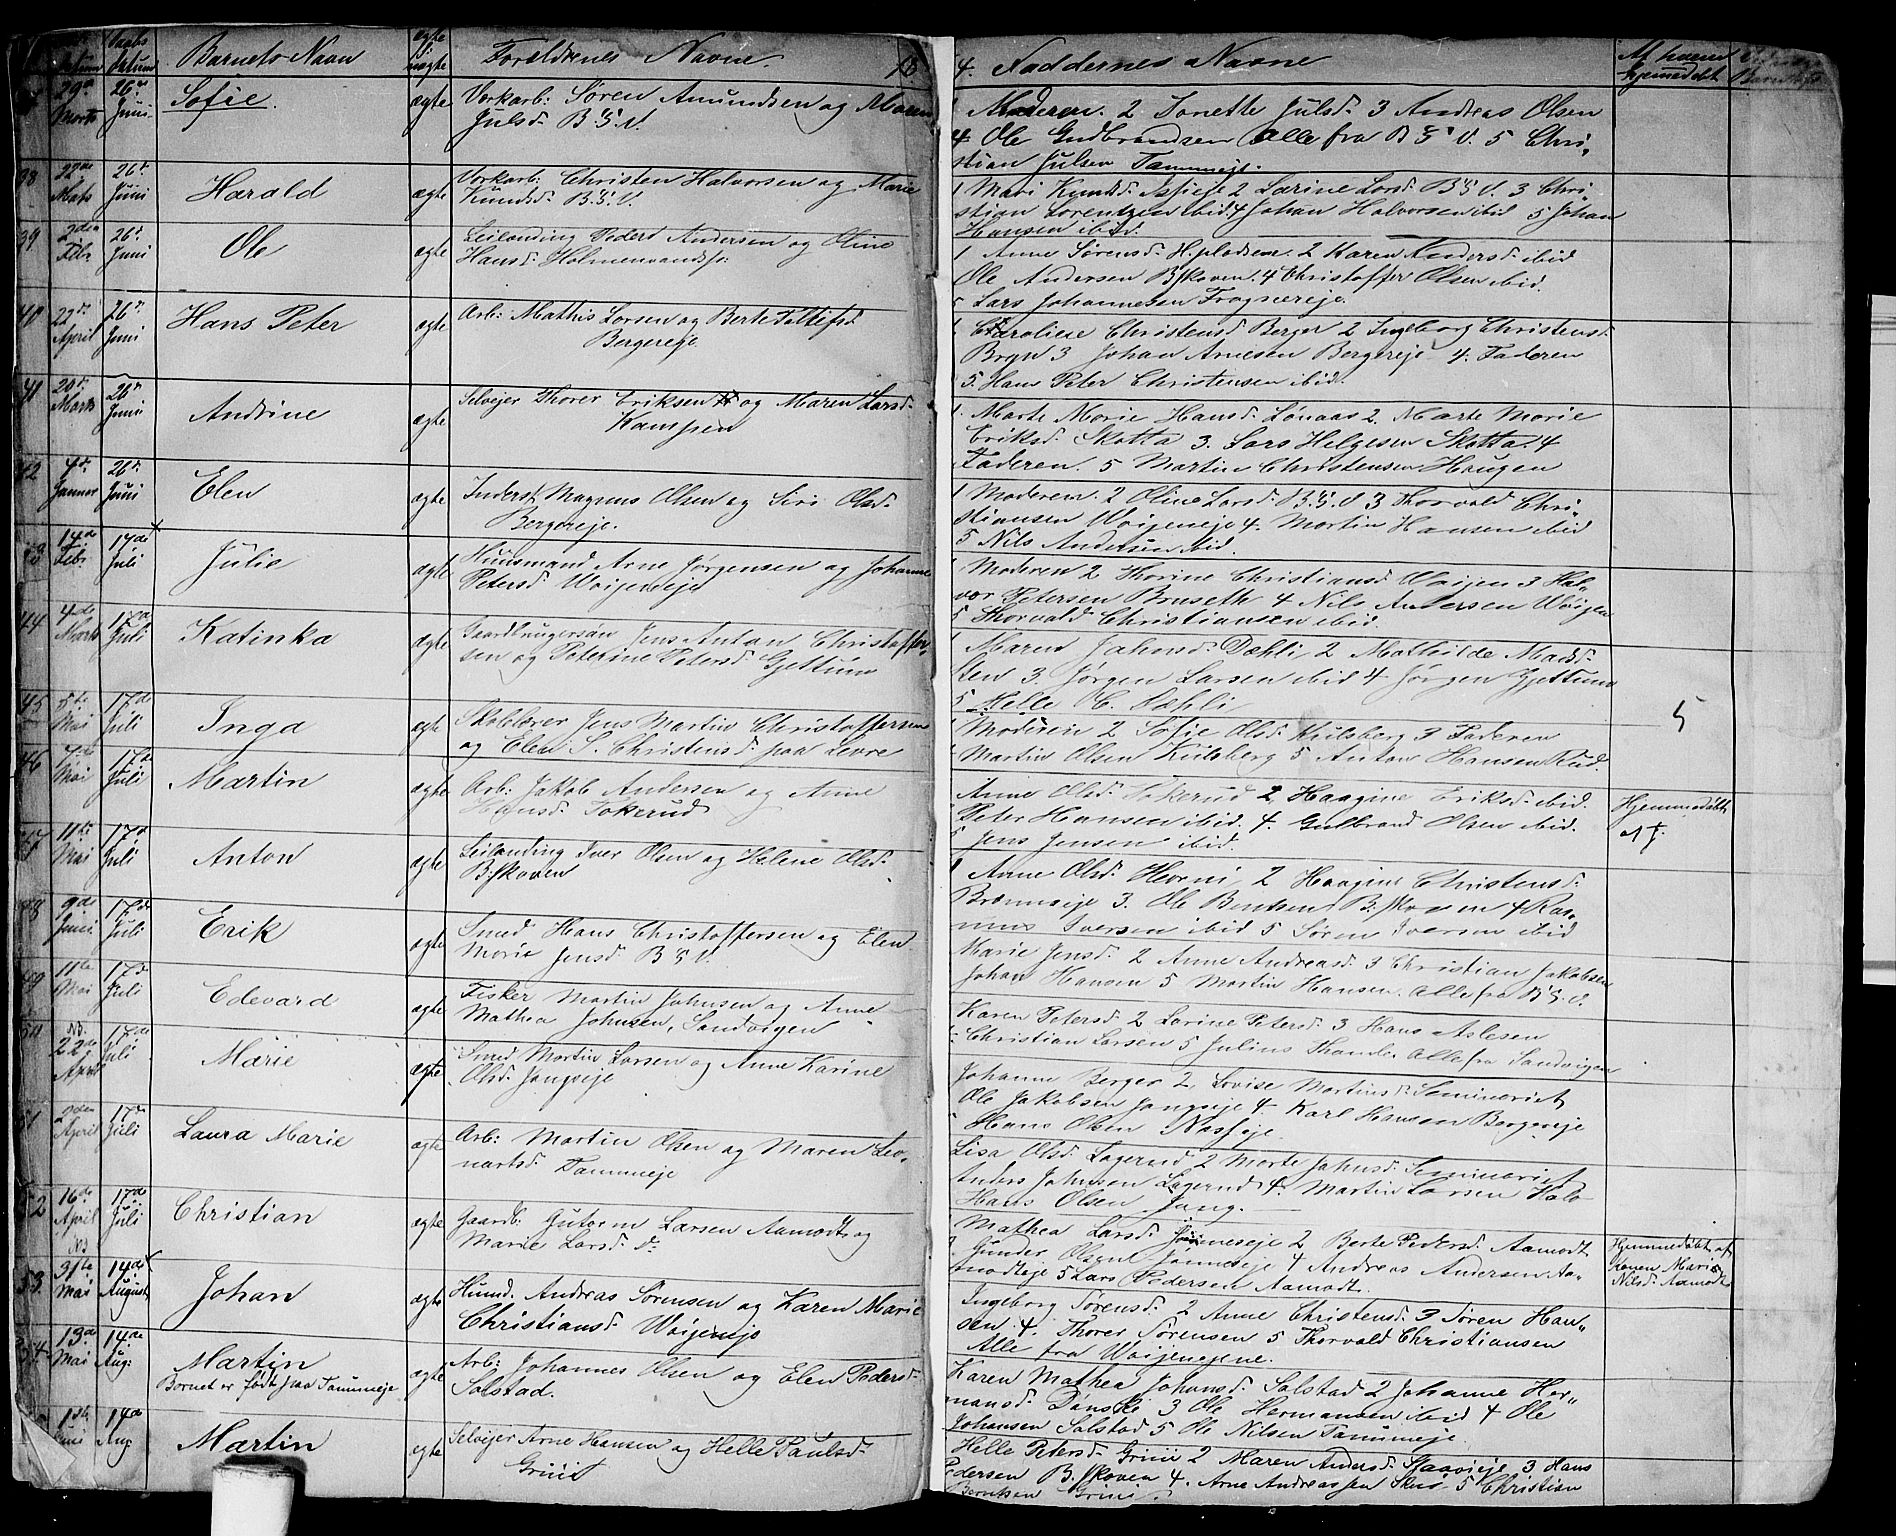 Barnets Navn
Forældrenes Navne.
4. Faddernes Navne
29de Marts 26de Juni Sofie ægte Værkarb: Søren Amundsen og Maren
Julsd. B. J. V.
1 Moderen. 2 Jonette Julsd. 3 Andreas Olsen
4 Ole Gudbrandsen Alle fra B J V. 5 Chri-
stian Julsen Tanumeje.
38 22de Mats 26de Juni Harald ægte Værkarb: Christen Halvorsen og Marie
Knudsd. B. J. V.
1 Mari Knudsd. 2 Larine Larsd. B J V. 3 Chri-
stian Lorentzen ibid. 4 Johan Halvorsen ibid 5 Johan
Hansen ibid.
39 2den Febr 26de Juni Ole ægte Leilænding Peder Andersen og Oline
Hansd.
1 Anne Sørensd. 2 Karen Andersd. ibid
Ole Andersen B.skoven. 4 Christoffer Olsen ibid.
5 Lars Johannesen Frognereje.
22de April 26de Juni Hans Peter ægte Arb: Mathis Larsen og Berte
Bergereje
1 Caroline Christensd. Berger 2 Ingeborg Christensd.
Bryn 3 Johan Arnesen Bergereje 4. Faderen
5. Hans Peter Christensen ibid.
41 20de Marts 26de Juni Andrine ægte Selvejer Thorer Eriksen og Maren Larsd.
Kampen
1. Marte Marie Hansd. Lønaas 2. Marte Marie
Eriksd. Skotta 3. Lars Helgesen Skotta. 4
Faderen. 5 Martin Christensen Haugen
42 4de Januar 26de Juni Elen ægte Inderst Magnus Olsen og Siri Olsd.
Bergereje.
1 Moderen. 2 Oline Larsd. B. J. V 3 Thorvald Chri-
stiansen Woijeneje 4. Martin Hansen ibid
5 Nils Andersen ibid.
43 14de Febr 17de Juli Julie ægte Huusmand Arne Jørgensen og Johanne
Petersd Woijeneje
1 Moderen 2 Thorine Christiansd Woijen 3 Hal-
vor Petersen Bruseth 4 Nils Andersen Woijen
5 Thorvald Christiansen ibid.
44 4de Marts 17de Juli Katinka ægte Gaardbrugersøn Jens Anton Christoffer-
sen og Peterine Petersd. Gjettum
1 Maren Jahnsd. Dæhli 2 Mathilde Madsd.
Sten 3. Jørgen Larsen ibid 4 Jørgen Gjettum
5 Helle C. Dæhli
45 5te Mai 17de Juli Inga ægte Skolelærer Jens Martin Christoffersen
og Elen S. Christensd. paa Levre
1 Moderen 2 Sofie Olsd. Kulsberg 3 Faderen
Martin Olsen Kulsberg 5 Anton Hansen Rud.
5
46 Mai 17de Juli Martin ægte Arb: Jakob Andersen og Anne
Hansd. Tokerud
Anne Olsd. Tokerud 2 Haagine Eriksd. ibid.
Peter Hansen ibid. 4. Gulbrand Olsen ibid.
5 Jens Jensen ibid.
Hjemmedøbt
af J.
47 11te Mai 17de Juli Anton ægte Leilænding Iver Olsen og Helene Olsd.
B:skoven
1 Anne Olsd. Horni 2 Haagine Christensd.
3. Ole Berntsen B:skoven 4 Ras-
mus Iversen ibid 5 Søren Iversen ibid
48 9de Juni 17de Juli Erik ægte Smed Hans Christoffersen og Elen
Marie Jensd. B J V.
Marie Jensd. 2 Anne Andreasd. 3 Christian Jakobsen
Johan Hansen 5 Martin Hansen. Alle fra B. J. V.
49 11te Mai 17de Juli Edevard ægte Fisker Martin Johnsen og Anne
Mathea Johnsen, Sandvigen
Karen Petersd. 2 Larine Petersd. 3 Hans Aslesen
Christian Larsen 5 Julius Alle fra Sandvigen
50 NB. 22de April 17de Juli Marie ægte Smed Martin Larsen og Anne Karine
Olsd. Jongseje
Johanne Berger 2. Lovise Martinsd. Seminariet
Ole Jakobsen Jongseje 4. Karl Hansen Bergereje
Hans Olsen Næsseje
51 2den April 17de Juli Laura Marie ægte Arb: Martin Olsen og Maren Leo-
nartsd. Tanumeje
Lisa Olsd. Lagerud 2 Marte Jahnsd. Seminariet
Anders Johnsen Lagerud 4. Martin Larsen
Hans Olsen Jong.
52 16de April NB 17de Juli Christian ægte Gaardb: Gutorm Larsen Aamodt og
Marie Larsd. Do
Mathea Larsd. 2 Berte Pedersd. Aamodt
Gunder Olsen 4 Andreas Andersen Aa-
modteje 5 Lars Pedersen Aamodt.
Hjemmedøbt af
Karen Marie
Nilsd. Aamodt
53. 31te Mai 14de August Johan ægte Huusm. Andreas Sørensen og Karen Marie
Christiansd. Woijeneje
Ingeborg Sørensd. 2 Anne Christensd. 3 Søren Han-
sen. 4. Thorer Sørensen 5 Thorvald Christiansen
Alle fra Woijenejene.
54 13de Mai 14de Aug: Martin ægte Arb: Johannes Olsen og Elen Pedersd.
Barnet er født paa Tanumeje
Solstad.
Karen Mathea Johansd. Solstad 2 Johanne Her-
mansd. Dønski 3 Ole Hermansen ibid 4 Ole
Johansen Solstad 5 Ole Nilsen Tanumeje.
1ste Juni 14de Aug Martin ægte Selvejer Arne Hansen og Helle Paulsd.
Grini
Helle Petersd. Grini 2 Maren Andersd. 3 Hans
Pedersen B.skoven 4. Arne Andreassen 5 Christian
Berntsen Grini.